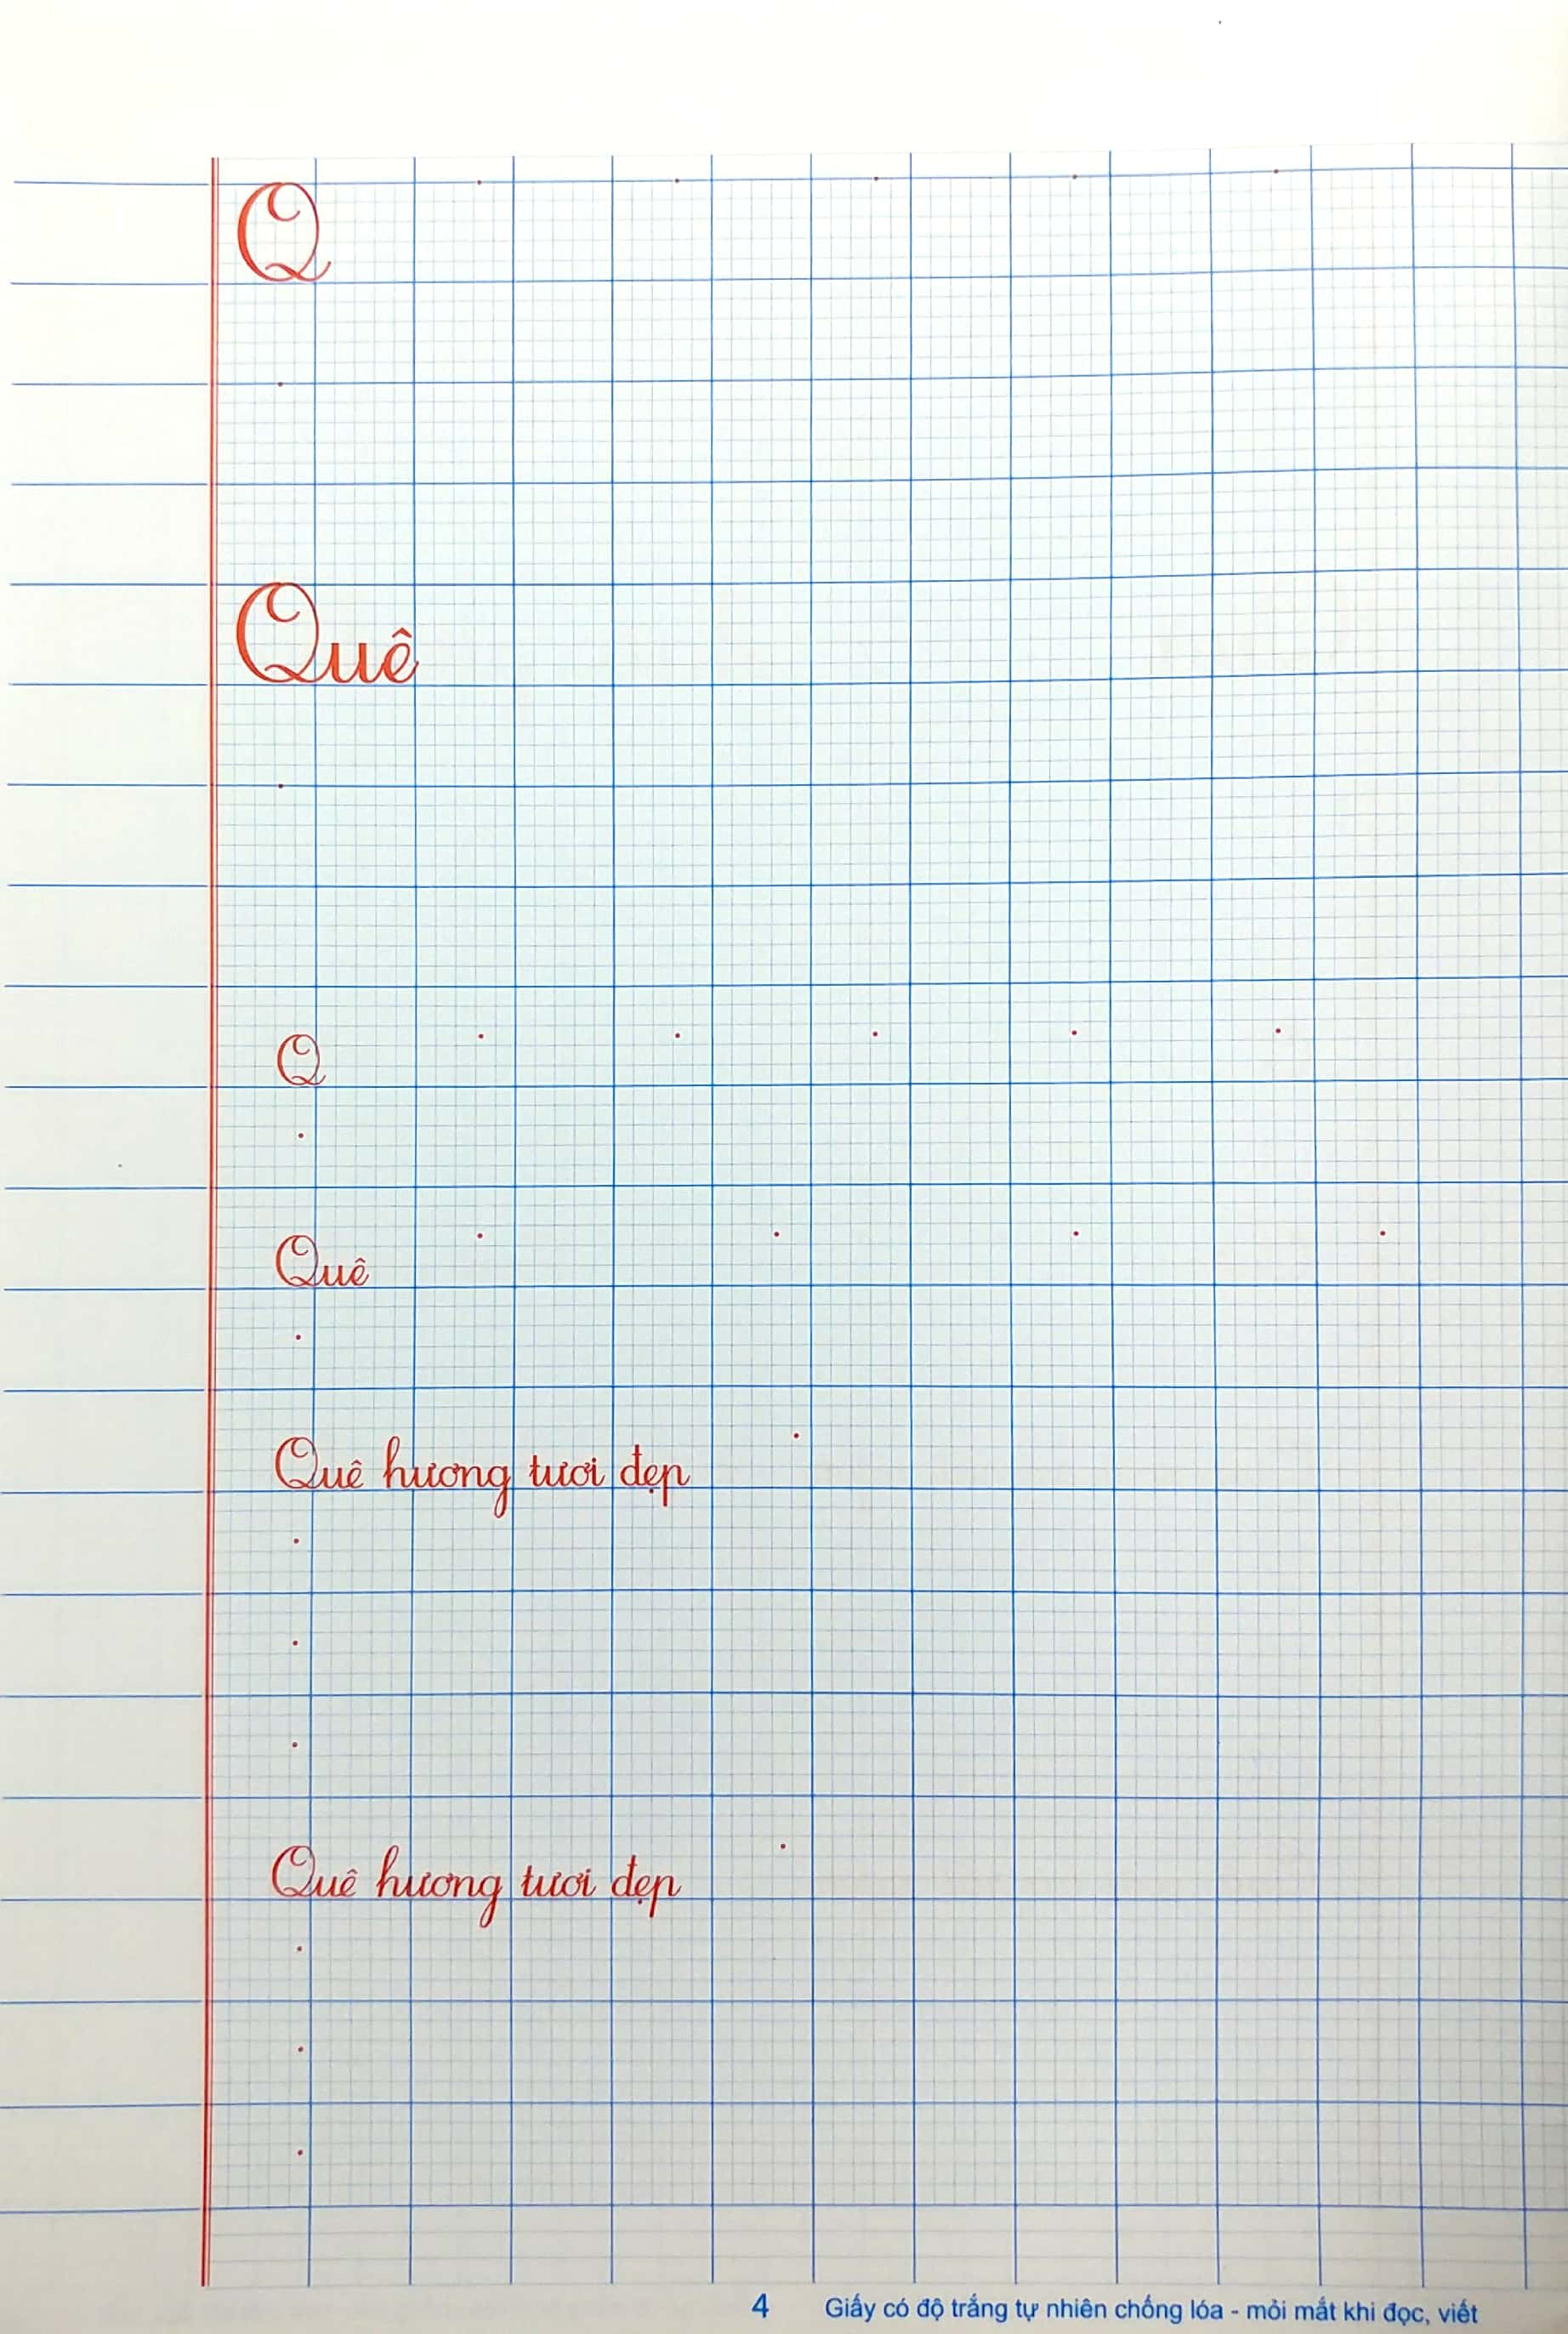 Q
Quê
Q
Quê
Quê hương tươi đẹp
Quê hương tươi đẹp
4 Giấy có độ trắng tự nhiên chống lóa - mỏi mắt khi đọc, viết